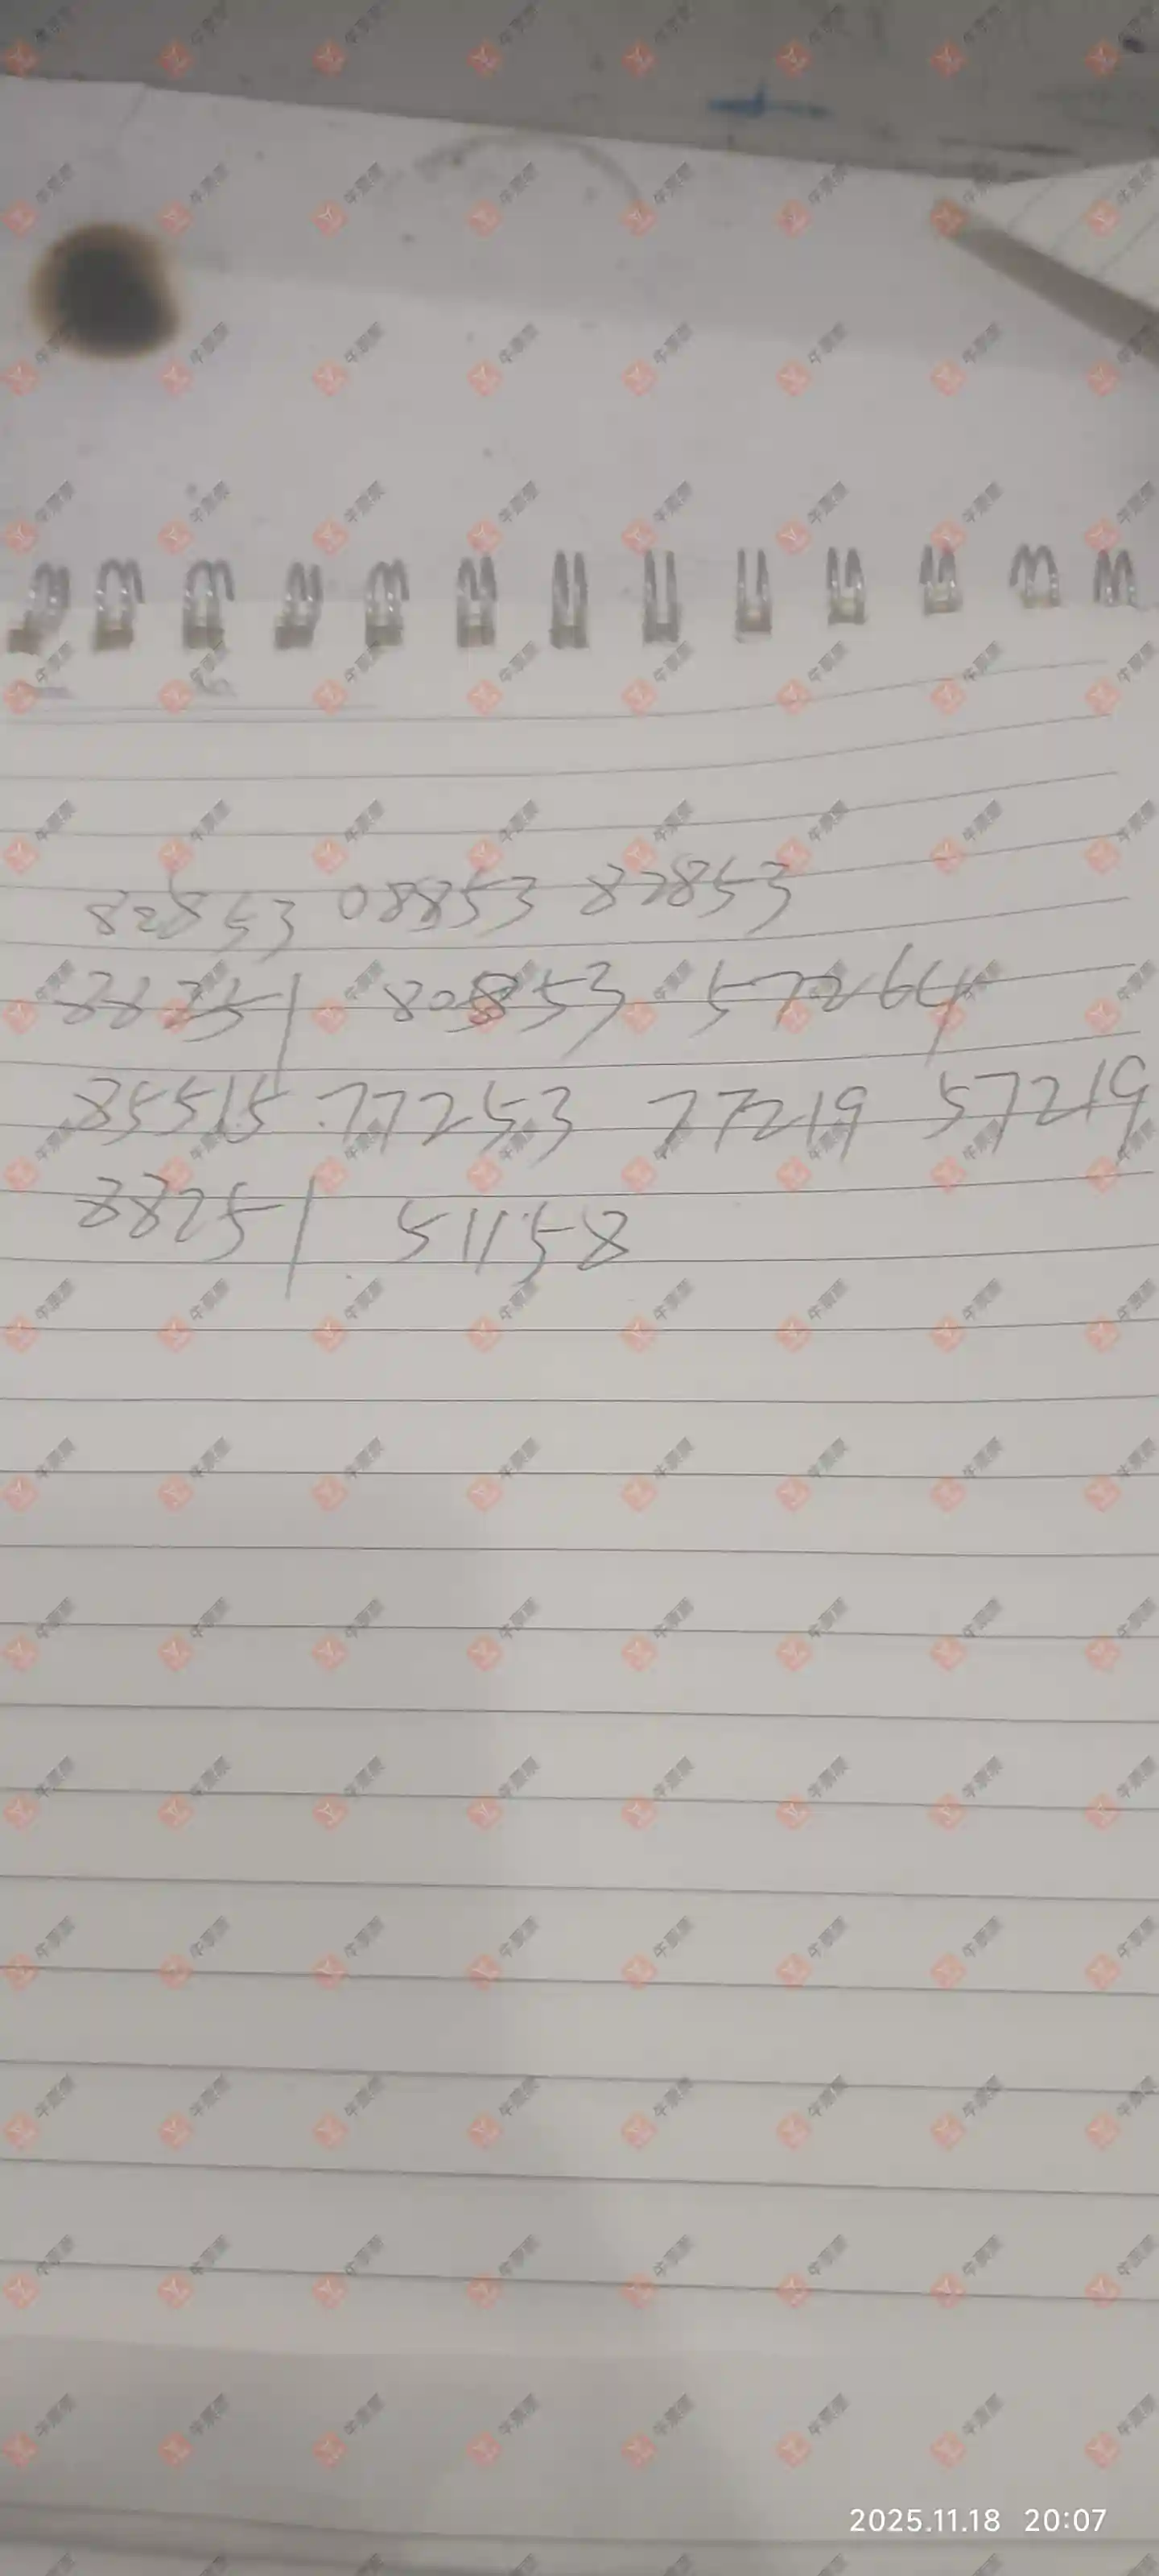 82853 08853 82853
88351 80853 57264
85515 77253 77219 57219
88251 51158
2025.11.18 20:07